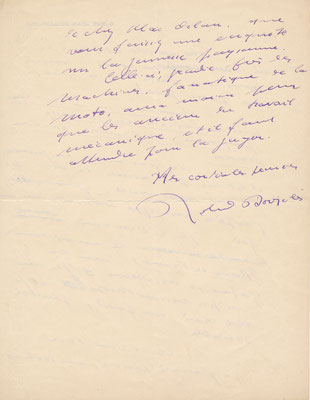 le cher Mac Orlan, que
vous fassiez une enquête
sur la jeunesse paysanne.
Celle-ci, des
machines, fanatique de la
moto, aura moins peur
que les anciens du travail
mécanique, et il faut
attendre pour la juger.
Mes cordiales pensées
Roland Dorgelès